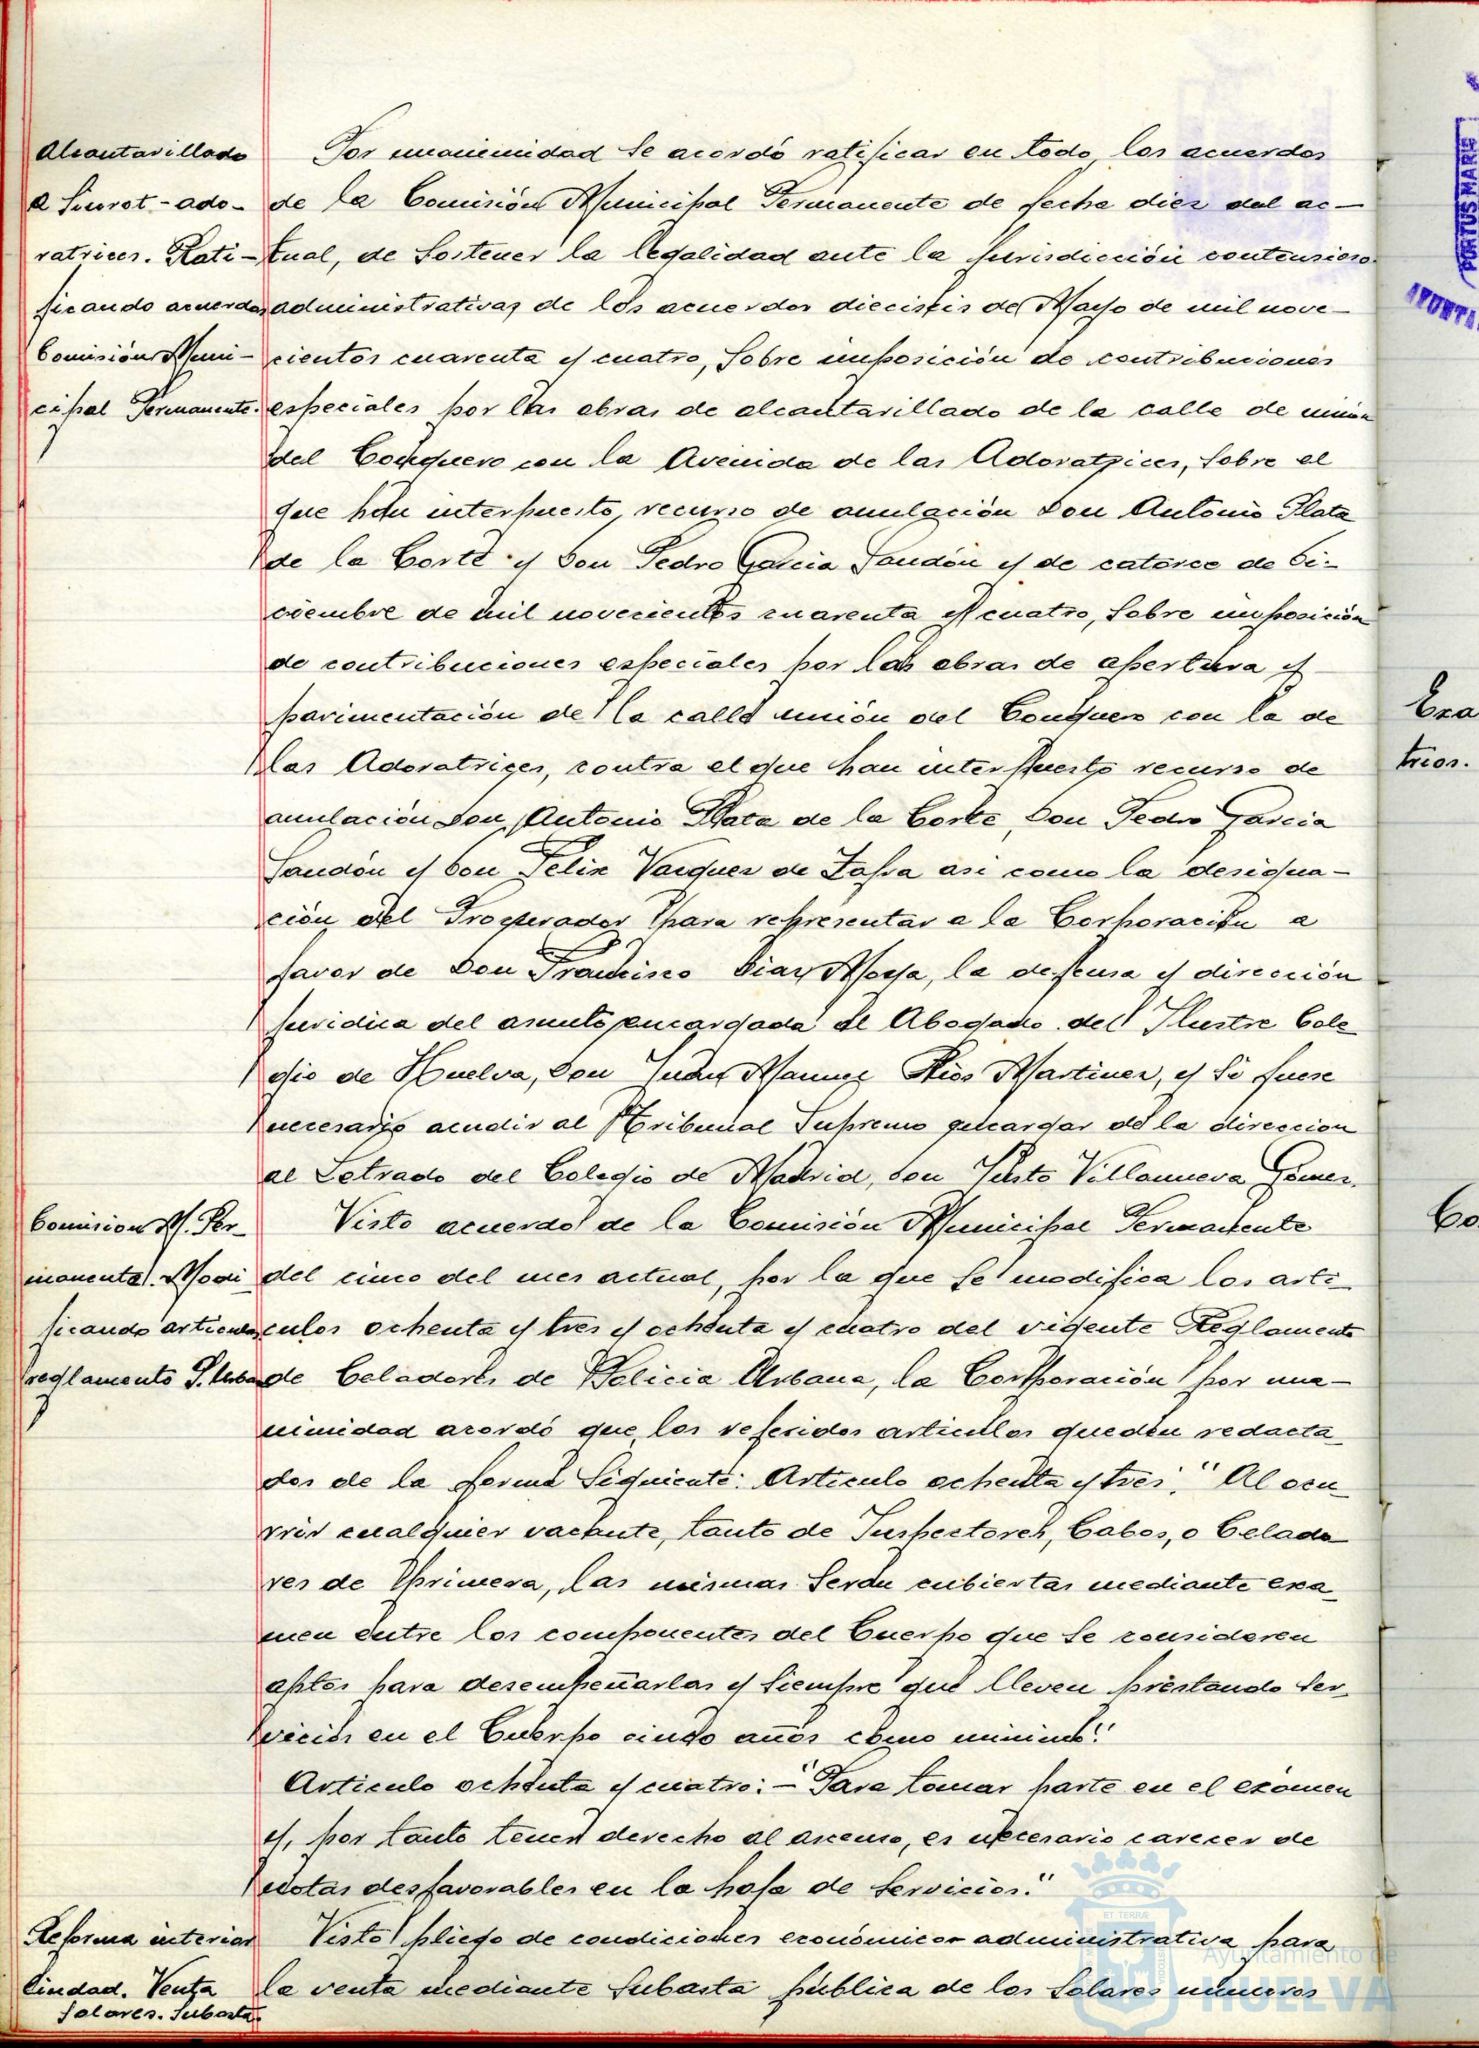 Alcantarillado
a Siurot-ado-
ratrices. Rati-
ficando acuerdos
Comisión Muni-
cipal Permanente.
Por unanimidad se acordó ratificar en todo, los acuerdos
de la Comisión Municipal Permanente de fecha diez del ac-
tual, de sostener la legalidad ante la jurisdicción contencioso
administrativas de los acuerdos dieciseis de Mayo de mil nove-
cientos cuarenta y cuatro, sobre imposición de contribuciones
especiales por las obras de alcantarillado de la calle de unión
del Conquero con la Avenida de las Adoratrices, sobre el
que han interpuesto, recurso de anulación Don Antonio Plata
de la Corte y Don Pedro Garcia Sandón y de catorce de Di-
ciembre de mil novecientos cuarenta y cuatro, sobre imposición
de contribuciones especiales por las obras de apertura y
pavimentación de la calle unión del Conquero con la de
las Adoratrices, contra el que han interpuesto recurso de
anulación Don Antonio Plata de la Corte, Don Pedro Garcia
Sandón y Don Felix Vazquez de Zafra asi como la designa-
ción del Procurador para representar a la Corporación a
favor de Don Francisco Diaz Moya, la defensa y dirección
juridica del asunto encargada al Abogado del Ilustre Cole
gio de Huelva, Don Juan Manuel Rios Martinez, y si fuese
necesario acudir al Tribunal Supremo encargar de la direccion
al Letrado del Colegio de Madrid, Don Justo Villanueva Gómez.
Comision M. Per-
manente. Modi
ficando articulos
reglamento P. Urbana
Visto acuerdo de la Comisión Municipal Permanente
del cinco del mes actual, por la que se modifica los arti-
culos ochenta y tres y ochenta y cuatro del vigente Reglamento
de Celadores de Policia Urbana, la Corporación por una-
nimidad acordó que los referidos articulos queden redacta-
dos de la forma siguiente: Articulo ochenta y tres: "Al ocu-
rrir cualquier vacante, tanto de Inspectores, Cabos, o Celado
res de Primera, las mismas serán cubiertas mediante exa-
men entre los componentes del Cuerpo que se consideren
aptos para desempeñarlas y siempre que lleven prestando ser-
vicios en el Cuerpo cinco años como minimo."
Articulo ochenta y cuatro: - "Para tomar parte en el exámen
y, por tanto tener derecho al ascenso, es necesario carecer de
notas desfavorables en la hoja de servicios."
Reforma interior
Ciudad. Venta
solares. Subasta.
Visto pliego de condiciones económico-administrativa para
la venta mediante subasta pública de los solares números
PORTUS MARIS
AYUNTA
Exa
trios.
Co
ET TERRÆ
Ayuntamiento de
HUELVA